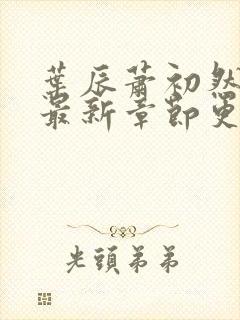 葉辰蕭初然
最新章節更
光頭弟弟